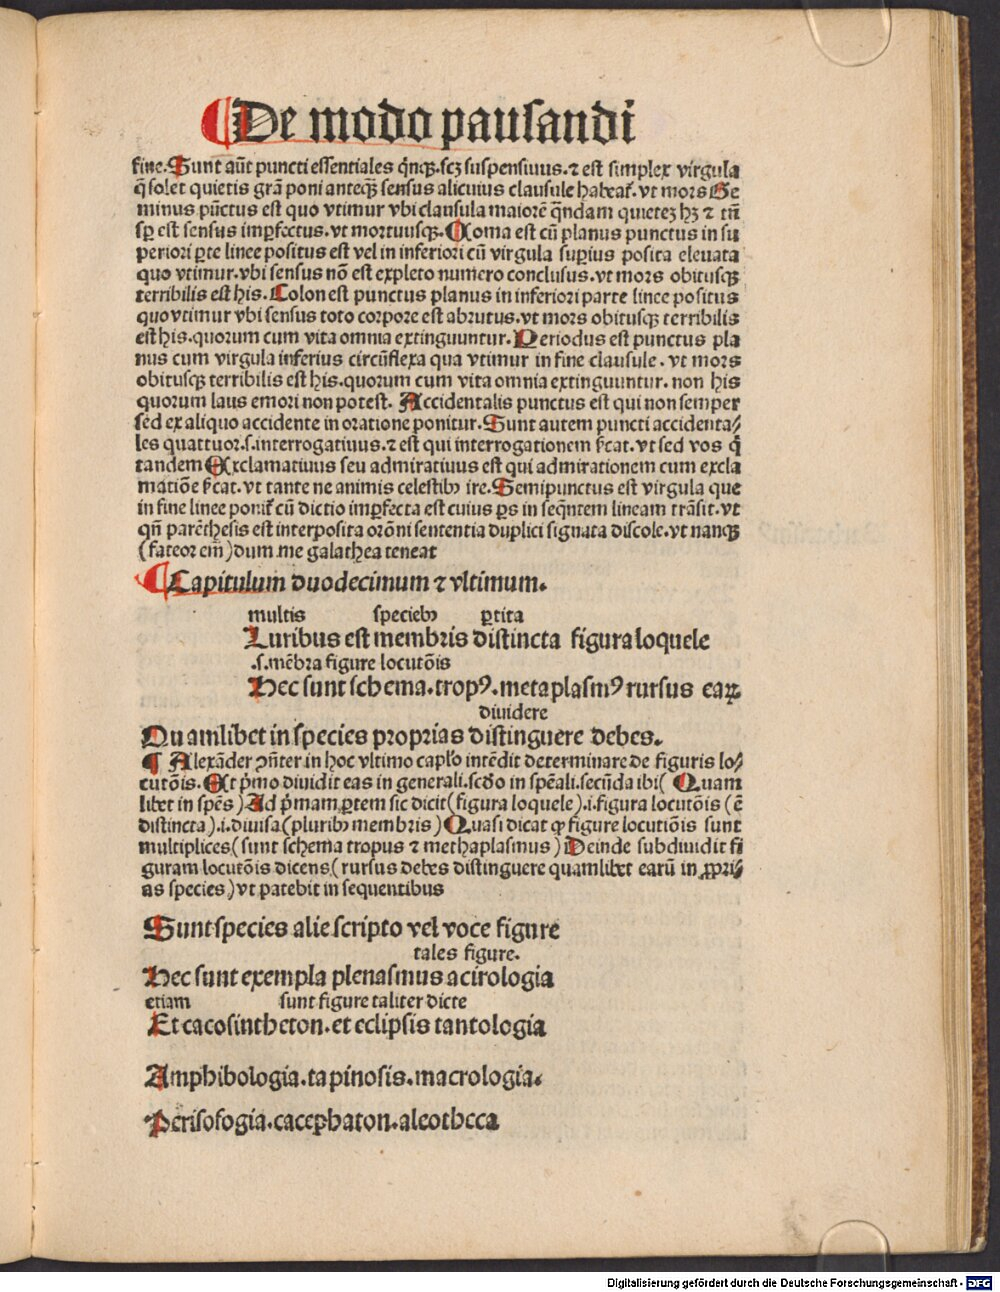 De modo pausandi
fine. Sunt aūt puncti essentiales q̄nqꝫ. scꝫ suspensiuus. ⁊ est simplex virgula
q̄ solet quietis grā poni anteqꝫ sensus alicuius clausule habeat᷑. vt mors Ge
minus pūctus est quo vtimur vbi clausula maiorē q̄ndam quieteꝫ hꝫ ⁊ tn̄
sꝑ est sensus imꝑfectus. vt mortuusqꝫ. Coma est cū planus punctus in su
periori ꝑte linee positus est vel in inferiori cū virgula suꝑius posita eleuata
quo vtimur. vbi sensus nō est expleto numero conclusus. vt mors obitusqꝫ
terribilis est his. Colon est punctus planus in inferiori parte linee positus
quo vtimur vbi sensus toto corpore est abrutus. vt mors obitusqꝫ terribilis
est his. quorum cum vita omnia extinguuntur. Periodus est punctus pla
nus cum virgula inferius circūflexa qua vtimur in fine clausule. vt mors
obitusqꝫ terribilis est his. quorum cum vita omnia extinguuntur. non his
quorum laus emori non potest. Accidentalis punctus est qui non semper
sed ex aliquo accidente in oratione ponitur. Sunt autem puncti accidenta⸗
les quattuor. s. interrogatiuus. ⁊ est qui interrogationem s̄cat. vt sed vos q̄
tandem Exclamatiuus seu admiratiuus est qui admirationem cum excla
matiōe s̄cat. vt tante ne animis celestibꝫ ire. Semipunctus est virgula que
in fine linee ponit᷑ cū dictio imꝑfecta est cuius ꝑs in seq̄ntem lineam trāsit. vt
qn̄ parēthesis est interposita orōni sententia duplici signata discole. vt nanqꝫ
(fateor em̄) dum me galathea teneat
Capitulum duodecimum ⁊ vltimum.
multis speciebꝫ ꝑtita
Luribus est membris distincta figura loquele
.s. mēbra figure locutōis
Hec sunt schema. tropꝰ. metaplasmꝰ rursus earꝝ
diuidere
Quamlibet in species proprias distinguere debes.
¶ Alexāder ꝯn̄ter in hoc vltimo capl̄o intēdit determinare de figuris lo⸗
cutōis. Et p̄mo diuidit eas in generali. scdo in spēali. secūda ibi (Quam
libet in spēs) Ad p̄mam ꝑtem sic dicit (figura loquele) .i. figura locutōis (ē
distincta) .i. diuisa (pluribꝫ membris) Quasi dicat ꝙ figure locutiōis sunt
multiplices (sunt schema tropus ⁊ methaplasmus) Deinde subdiuidit fi
guram locutōis dicens (rursus debes distinguere quamlibet earū in ꝓpri⸗
as species) vt patebit in sequentibus
Sunt species alie scripto vel voce figure
tales figure.
Hec sunt exempla plenasmus acirologia
etiam sunt figure taliter dicte
Et cacosintheton. et eclipsis tantologia
Amphibologia. tapinosis. macrologia.
Perisofogia. cacephaton. aleotheca
Digitalisierung gefördert durch die Deutsche Forschungsgemeinschaft - DFG